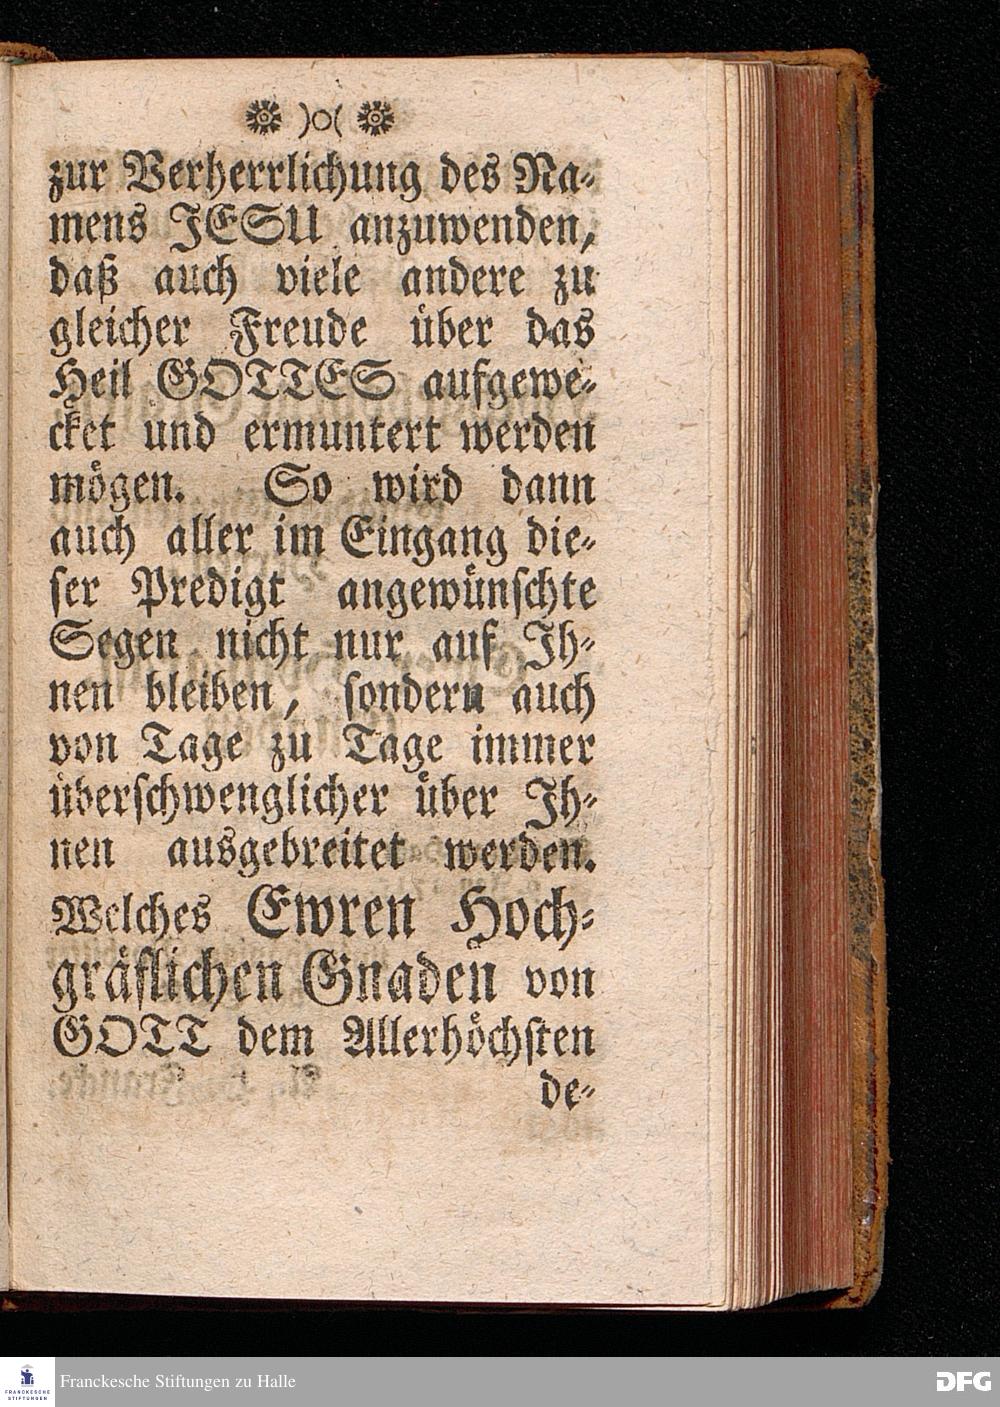 )o(
zur Verherrlichung des Na-
mens JESU anzuwenden,
daß auch viele andere zu
gleicher Freude über das
Heil GOTTES aufgewe-
cket und ermuntert werden
mögen. So wird dann
auch aller im Eingang die-
ser Predigt angewünschte
Segen nicht nur auf Ih-
nen bleiben, sondern auch
von Tage zu Tage immer
überschwenglicher über Ih-
nen ausgebreitet werden.
Welches Ewren Hoch-
gräflichen Gnaden von
GOTT dem Allerhöchsten
de-
FRANCKESCHE
STIFTUNGEN
Franckesche Stiftungen zu Halle
DFG